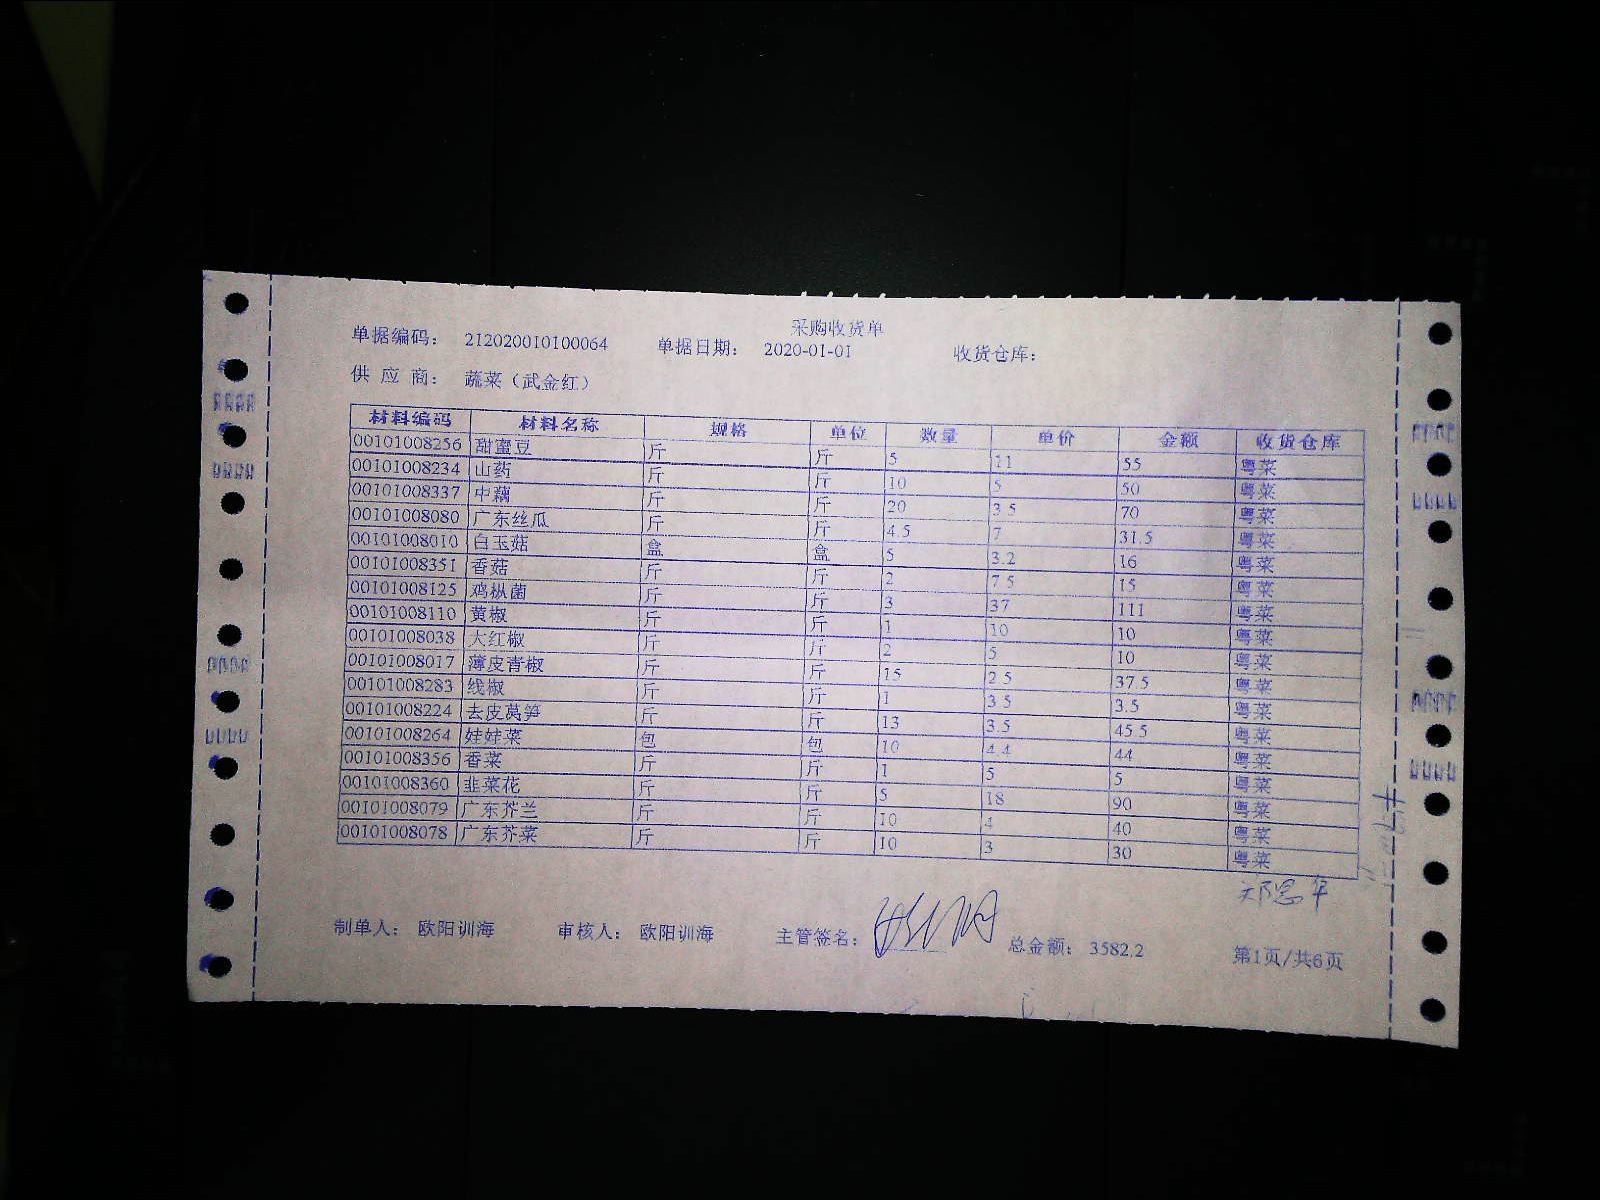 采购收货单
单据编码： 212020010100064 单据日期： 2020-01-01 收货仓库：
供 应 商： 蔬菜（武金红）
材料编码 材料名称 规格 单位 数量 单价 金额 收货仓库
00101008256 甜蜜豆 斤 斤 5 11 55 粤菜
00101008234 山药 斤 斤 10 5 50 粤菜
00101008337 中藕 斤 斤 20 3.5 70 粤菜
00101008080 广东丝瓜 斤 斤 4.5 7 31.5 粤菜
00101008010 白玉菇 盒 盒 5 3.2 16 粤菜
00101008351 香菇 斤 斤 2 7.5 15 粤菜
00101008125 鸡枞菌 斤 斤 3 37 111 粤菜
00101008110 黄椒 斤 斤 1 10 10 粤菜
00101008038 大红椒 斤 斤 2 5 10 粤菜
00101008017 薄皮青椒 斤 斤 15 2.5 37.5 粤菜
00101008283 线椒 斤 斤 1 3.5 3.5 粤菜
00101008224 去皮莴笋 斤 斤 13 3.5 45.5 粤菜
00101008264 娃娃菜 包 包 10 4.4 44 粤菜
00101008356 香菜 斤 斤 1 5 5 粤菜
00101008360 韭菜花 斤 斤 5 18 90 粤菜
00101008079 广东芥兰 斤 斤 10 4 40 粤菜
00101008078 广东芥菜 斤 斤 10 3 30 粤菜
制单人： 欧阳训海 审核人： 欧阳训海 主管签名： 总金额： 3582.2 第1页/共6页